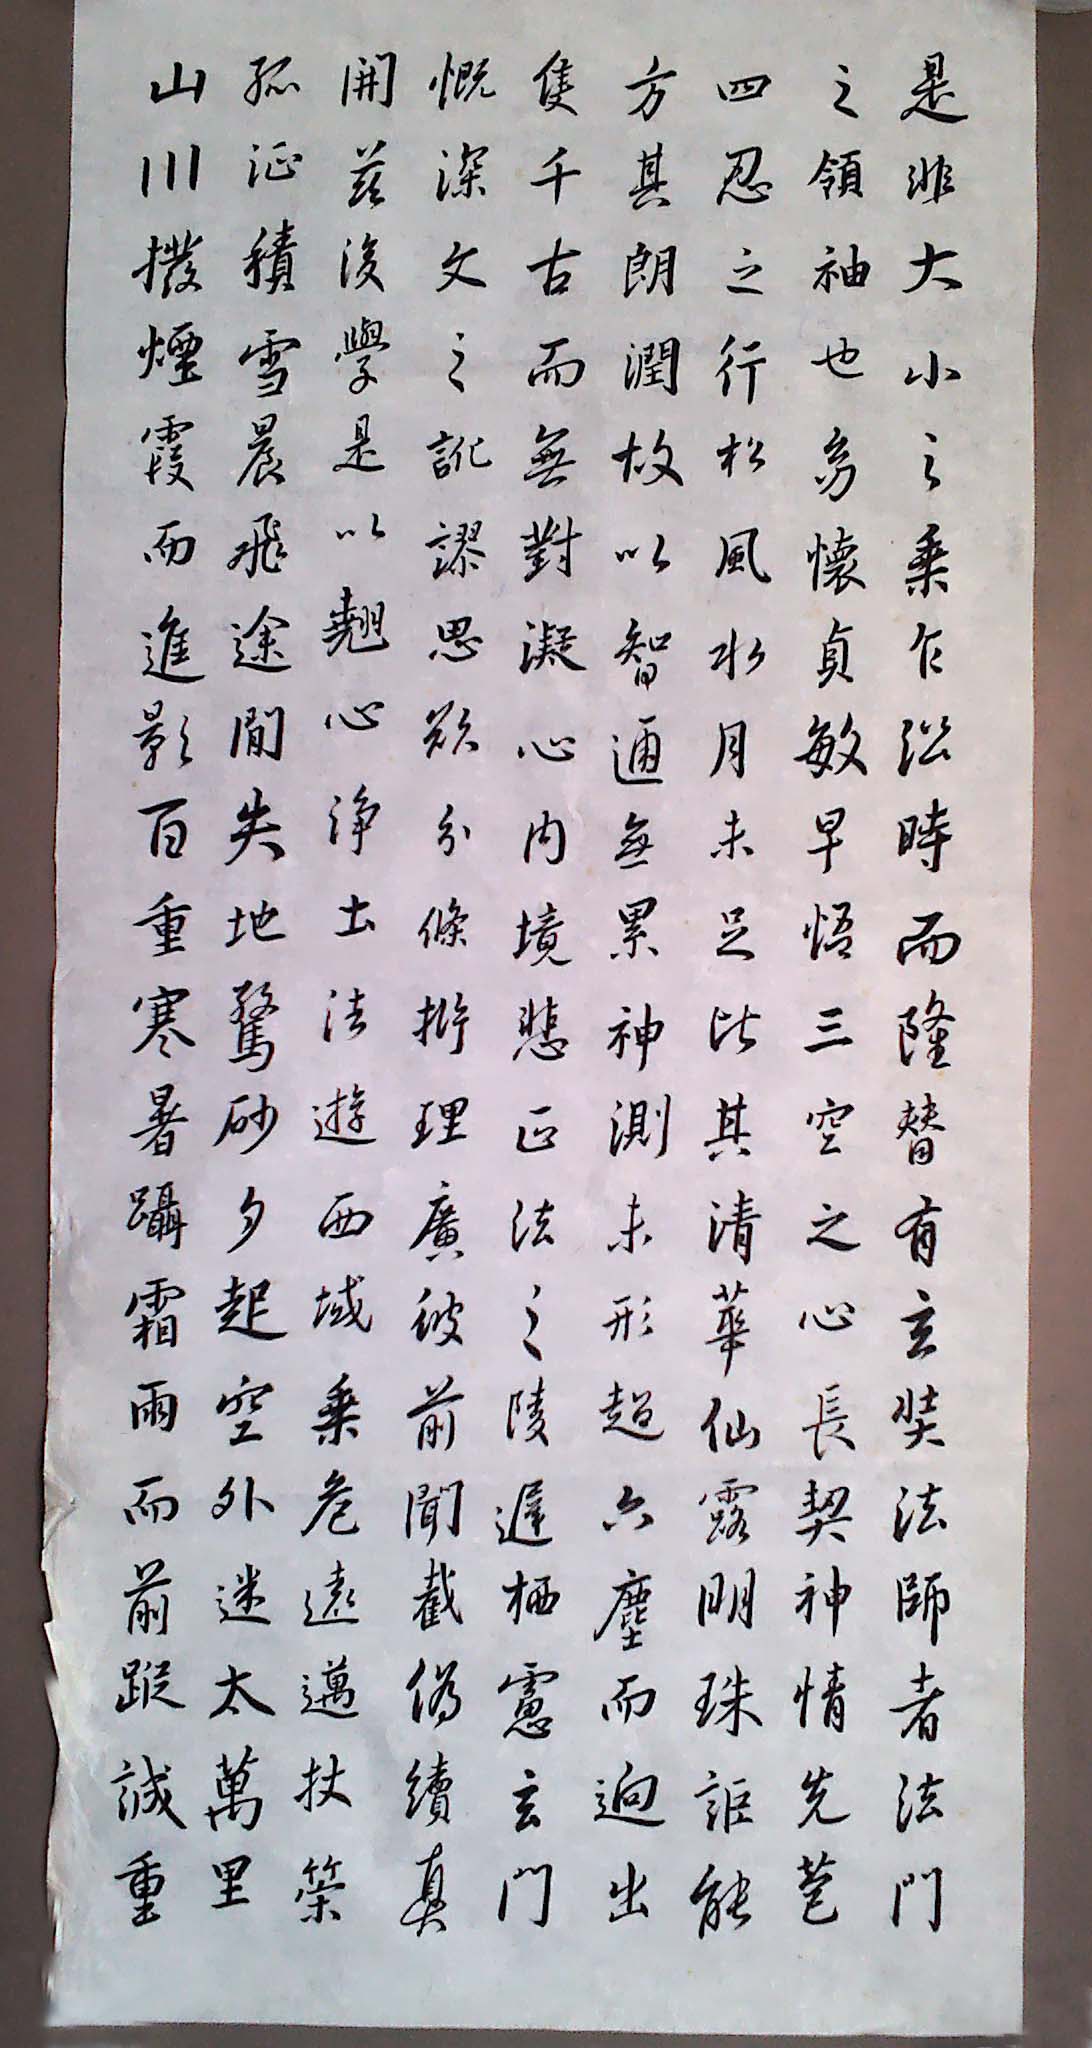 是非大小之乘乍沿時而隆替有玄奘法師者法門
之領袖也幼懷貞敏早悟三空之心長契神情先苞
四忍之行松風水月未足比其清華仙露明珠詎能
方其朗潤故以智通無累神測未形超六塵而迥出
隻千古而無對凝心內境悲正法之陵遲栖慮玄門
慨深文之訛謬思欲分條析理廣彼前聞截偽續真
開茲後學是以翹心淨土法遊西域乘危遠邁杖策
孤征積雪晨飛途間失地驚砂夕起空外迷天萬里
山川撥煙霞而進影百重寒暑躡霜雨而前蹤誠重